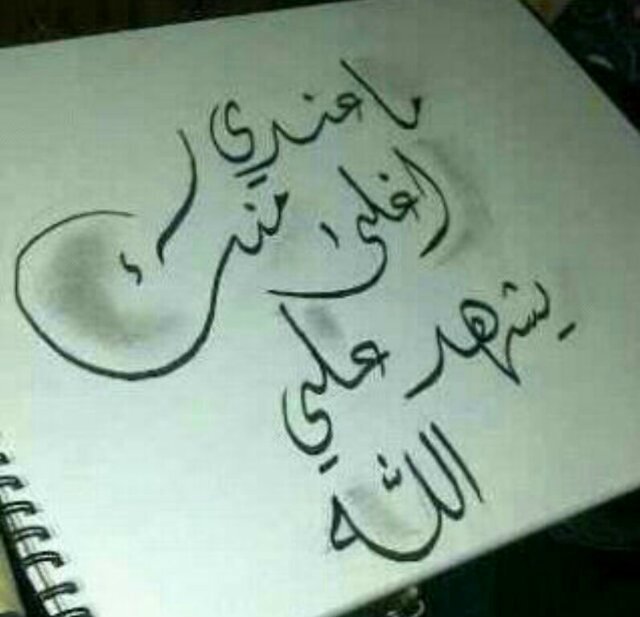 ما عندي
اغلىٰ منك
يشهد علي
الله